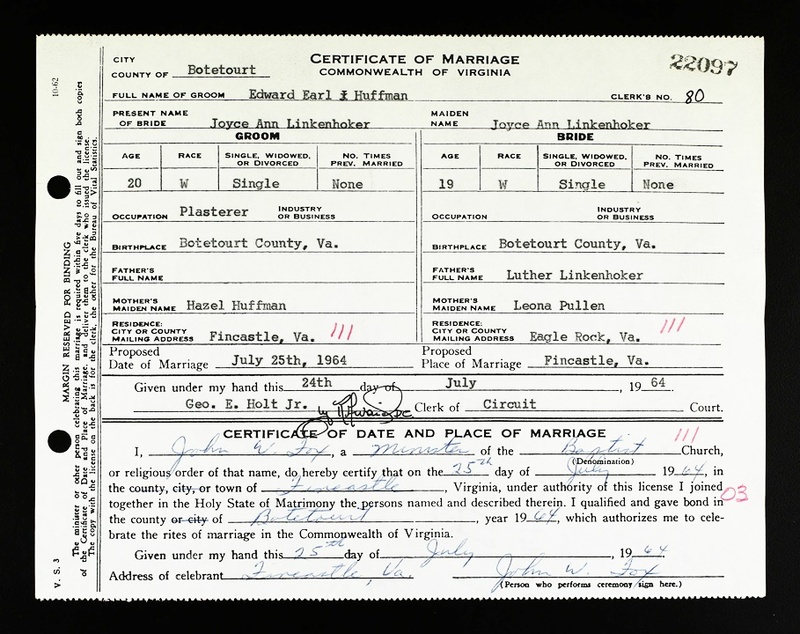 CITY
COUNTY OF Botetourt
CERTIFICATE OF MARRIAGE
COMMONWEALTH OF VIRGINIA
22097
FULL NAME OF GROOM Edward Earl Huffman CLERK'S NO. 80
PRESENT NAME OF BRIDE Joyce Ann Linkenhoker MAIDEN NAME Joyce Ann Linkenhoker
GROOM BRIDE
AGE RACE SINGLE, WIDOWED, OR DIVORCED NO. TIMES PREV. MARRIED AGE RACE SINGLE, WIDOWED, OR DIVORCED NO. TIMES PREV. MARRIED
20 W Single None 19 W Single None
OCCUPATION Plasterer INDUSTRY OR BUSINESS OCCUPATION INDUSTRY OR BUSINESS
BIRTHPLACE Botetourt County, Va. BIRTHPLACE Botetourt County, Va.
FATHER'S FULL NAME FATHER'S FULL NAME Luther Linkenhoker
MOTHER'S MAIDEN NAME Hazel Huffman MOTHER'S MAIDEN NAME Leona Pullen
RESIDENCE: CITY OR COUNTY MAILING ADDRESS Fincastle, Va. 111 RESIDENCE: CITY OR COUNTY MAILING ADDRESS Eagle Rock, Va. 111
Proposed Date of Marriage July 25th, 1964 Proposed Place of Marriage Fincastle, Va.
Given under my hand this 24th day of July, 19 64.
Geo. E. Holt Jr. by Clerk of Circuit Court.
CERTIFICATE OF DATE AND PLACE OF MARRIAGE 111
I, John W. Fox, a Minister of the Baptist Church,
(Denomination)
or religious order of that name, do hereby certify that on the 25th day of July 1964, in
the county, city, or town of Fincastle, Virginia, under authority of this license I joined
together in the Holy State of Matrimony the persons named and described therein. I qualified and gave bond in 03
the county or city of Botetourt, year 1964, which authorizes me to cele-
brate the rites of marriage in the Commonwealth of Virginia.
Given under my hand this 25th day of July, 1964
Address of celebrant Fincastle, Va. John W. Fox
(Person who performs ceremony sign here.)
10-62
V. S. 3
MARGIN RESERVED FOR BINDING
The minister or other person celebrating this marriage is required within five days to fill out and sign both copies
of the Certificate of Date and Place of Marriage, and deliver them to the clerk who issued the license.
The copy with the license on the back is for the clerk, the other for the Bureau of Vital Statistics.